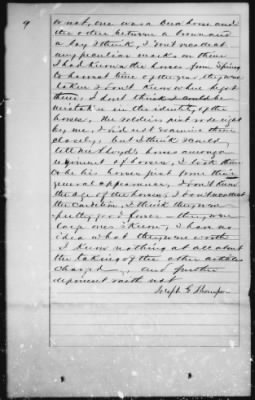 9
or not, one was a bca horse and
the other between a brown and
a bay I think, I don't recollect
any peculiar marks on them
I had known the horses from spring
to harvest time of the year they were
taken I don't know who kept
them, I don't think I could be
mistaken in the identity of the
horses. The soldiers just rode right
by me, I did not examine them
closely, but I think I could
tell Mr Lloyd's horses among a
regiment of horses, I took them
to be his horses just from their
general appearance, I don't know
the age of the horses, I don't recollect
the condition, I think they were
pretty good horses they were
large ones I know, I have no
idea what they were worth
I know nothing at all about
the taking of the other articles
charged, and further
deponent saith not
Joseph G.